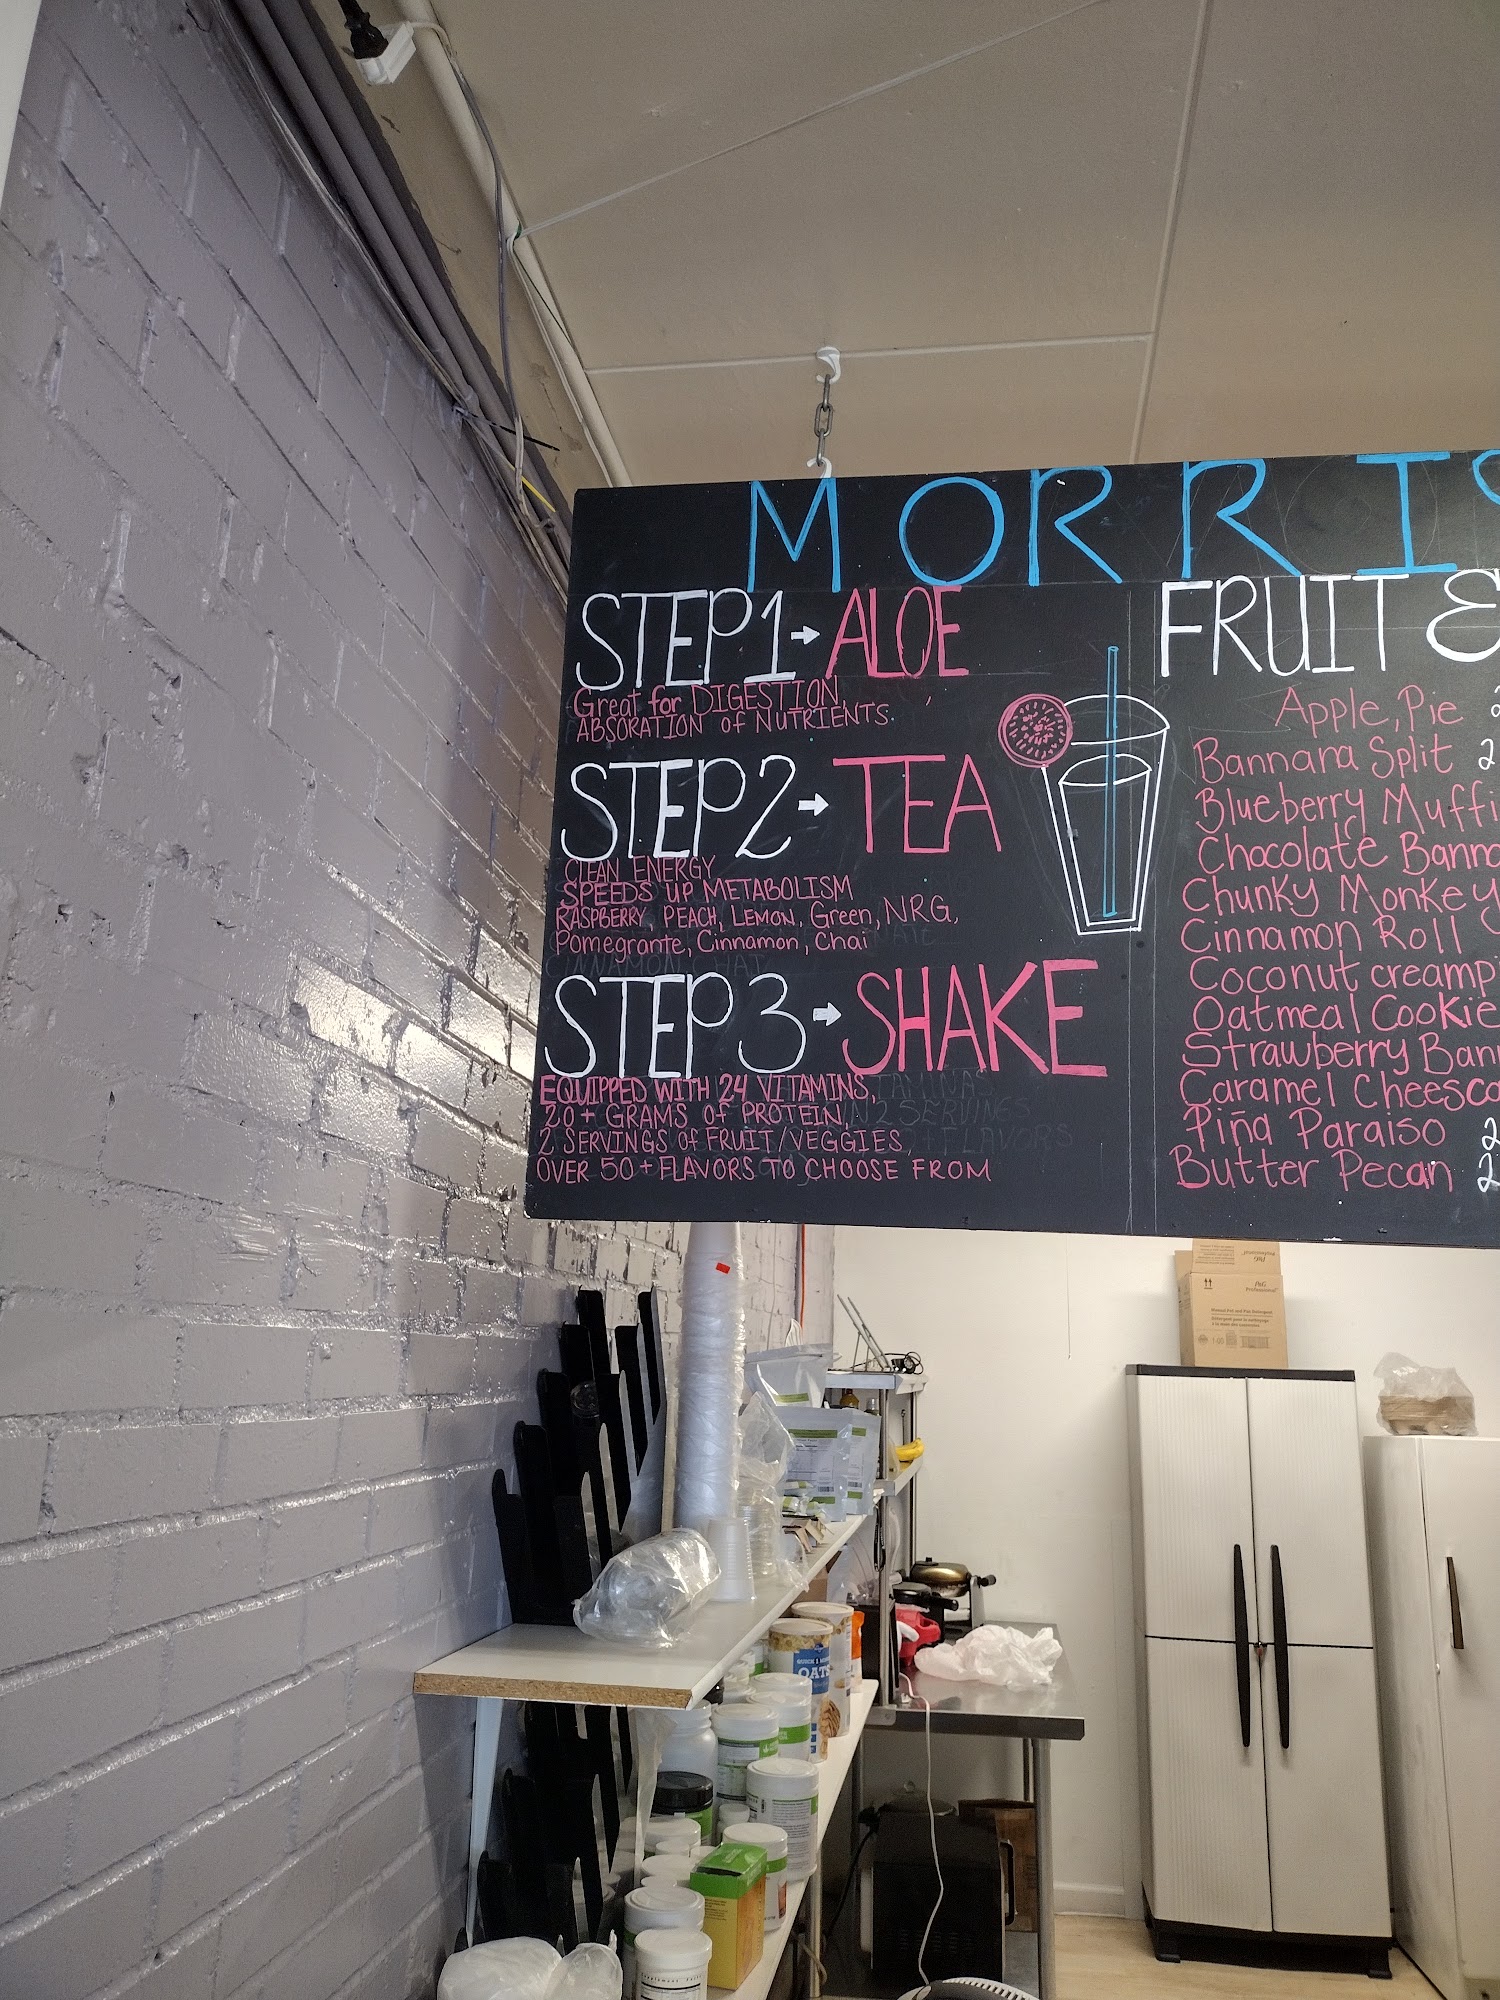 MORRIS
STEP 1 → ALOE
Great for DIGESTION,
ABSORATION of NUTRIENTS.
STEP 2 → TEA
CLEAN ENERGY
SPEEDS UP METABOLISM
RASPBERRY, PEACH, LEMON, Green, NRG,
Pomegrante, Cinnamon, Chai
STEP 3 → SHAKE
EQUIPPED WITH 24 VITAMINS,
20+ GRAMS of PROTEIN,
2 SERVINGS of FRUIT/VEGGIES,
OVER 50+ FLAVORS TO CHOOSE FROM
FRUIT &
Apple, Pie 2
Bannara Split 2
Blueberry Muffi
Chocolate Bann
Chunky Monkey
Cinnamon Roll
Coconut creampi
Oatmeal Cookie
Strawberry Ban
Caramel Cheesca
Piña Paraiso 2
Butter Pecan 2
P&G
Professional
QUICK 1 MINUTE
OATS